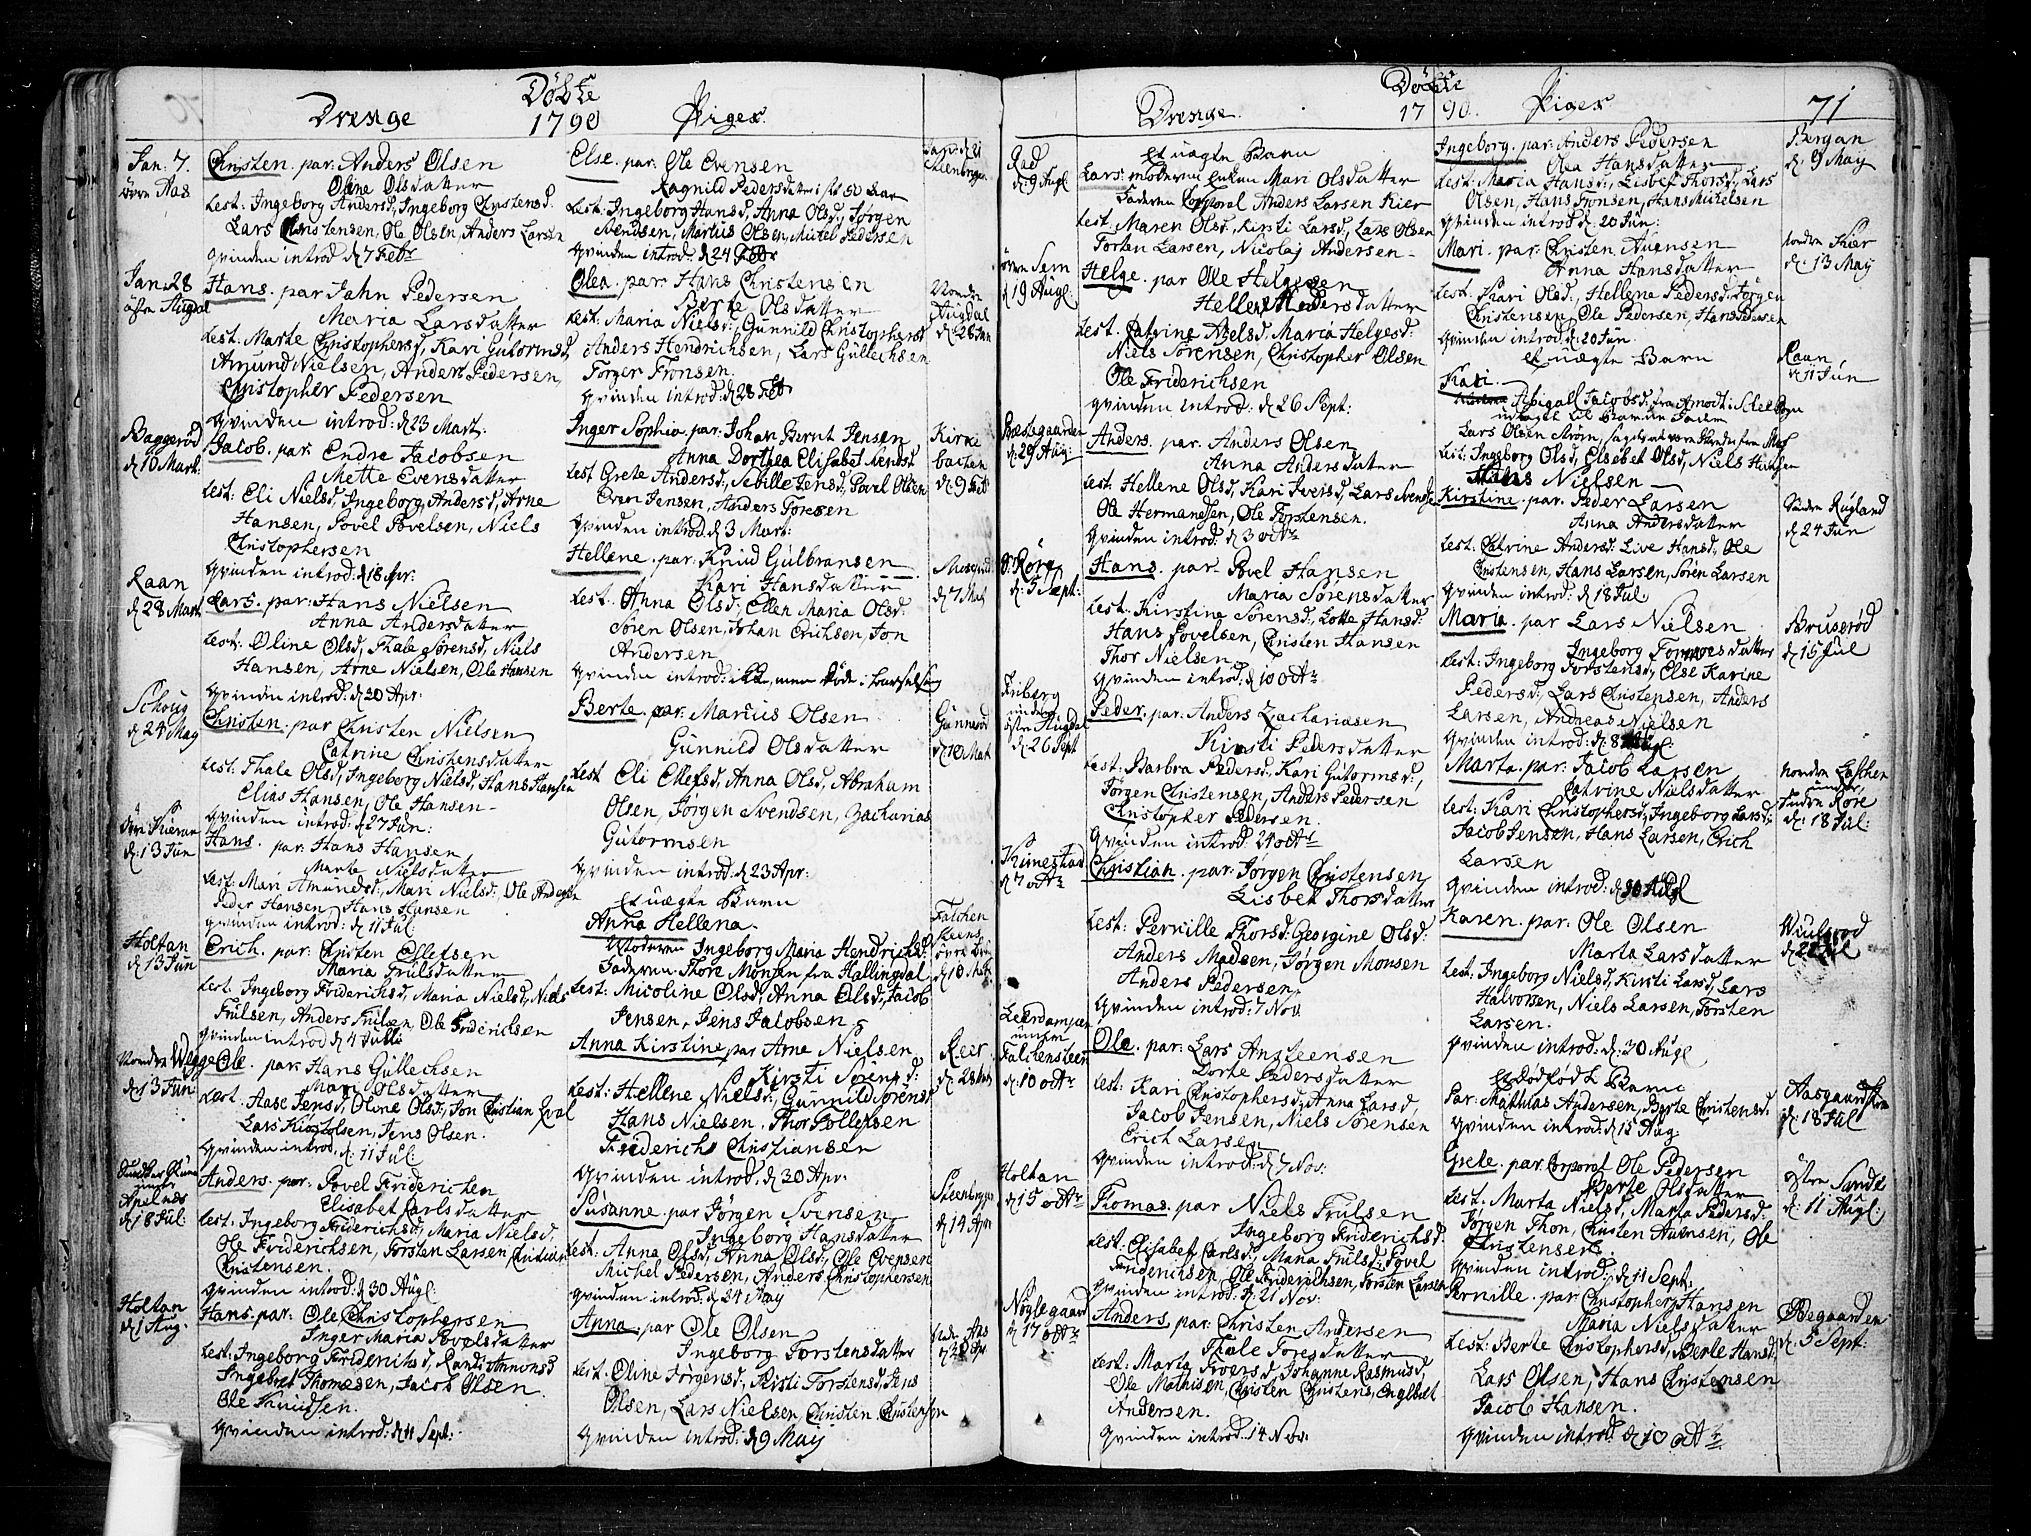 Döbte
Drenge 1790 Piger
Jan: 7.
övre Aas
Christen. par: Anders Olsen
Oline Olsdatter
test: Ingeborg Andersd, Ingeborg Christensd.
Lars Christensen, Ole Olsen, Anders Larsen
Qvinden introd: d 7 Febr
Jan: 28
östre Augdal
Hans. par Jahn Pedersen
Maria Larsdatter
test: Marte Christophersd, Kari Gutormsd,
Amund Nielsen, Anders Pedersen,
Christopher Pedersen
Qvinden introd: d 23 Mart:
Baggeröd
d 10 Mart:
Jacob. par: Endre Jacobsen
Mette Evensdatter
test: Eli Nielsd, Ingeborg Andersd, Arne
Hansen, Povel Povelsen, Niels
Christophersen
Qvinden introd: d 18 Apr:
Raan
d 28 Mart
Lars. par: Hans Nielsen
Anna Andersdatter
test: Oline Olsd, Thale Sörensd, Niels
Hansen, Arne Nielsen, Ole Hansen
Qvinden introd: d 20 Apr:
Schoug
d 24 May
Christen. par Christen Nielsen
Catrine Christensdatter
test: Thale Olsd, Ingeborg Nielsd, Hans Hansen
Elias Hansen, Ole Hansen
Qvinden introd: d 27 Jun:
d: 13 Jun
Hans. par: Hans Hansen
Marte Nielsdatter
test: Mari Amundsd, Mari Nielsd, Ole Anders
Peder Hansen, Hans Hansen
Qvinden introd: d 11 Jul
Holtan
d 13 Jun
Erich. par: Christen Ellefsen
Maria Trulsdatter
test. Ingeborg Friderichsd, Maria Nielsd, Niels
Trulsen, Anders Trulsen, Ole Friderichsen
Qvinden introd d 4 Julii
Nondre Wegge
d 13 Jun
Ole. par: Hans Gullechsen
Mari Olsdatter
test. Aase Jensd, Oline Olsd, Jon Christian
Lars Jens Olsen.
Qvinden introd, d: 11 Jul
d 18 Jul:
Anders. par: Povel Friderichsen
Elisabet Carlsdatter
test: Ingeborg Friderichsd, Maria Nielsd,
Ole Friderichsen, Torsten Larsen, Christian
Christensen.
Qvinden introd: d 30 Augl:
Holtan
d 1 Aug.
Hans. par: Ole Christophersen
Inger Maria Povelsdatter
test: Ingeborg Friderichsd, Randi Amonsd
Ingebret Thomesen, Jacob Olsen.
Ole Knudsen.
Qvinden introd: d 11 Sept:
Else. par: Ole Evensen
Ragnild Pedersdatter
test: Ingeborg Hansd, Anna Olsd, Jørgen
Svendsen, Marius Olsen, Michel Pedersen
Qvinden introd: d 24 Febr
Jan: d 21
Steenbryggen
Olea. par: Hans Christensen
Berte Olsdatter
test: Maria Nielsd:, Gunnild Christophersd
Anders Hendrichsen, Lars Gullechsen
Torger Tronsen.
Qvinden introd: d 28 Feb
Nondre
Augdal
d: 28 Jan
Inger Sophia. par: Johan Bernt Jensen
Anna Dorthea Elisabet Svendsd
test Grete Andersd, Sebille Jensd, Povel Olsen
Even Jensen, Anders Toresen
Qvinden introd: d 3 Mart:
Kirke
backen
d: 9 Feb
Hellene. par: Knud Gulbransen
Kari Hansdatter
test. Anna Olsd, Ellen Maria Olsd
Sören Olsen, Johan Erichsen, Jon
Andersen
Qvinden introd: ikke, men döde i barselseng
d: 7 Mart
Berte par: Marius Olsen
Gunnild Olsdatter
test Eli Ellefsd, Anna Olsd, Abraham
Olsen, Jörgen Svendsen, Zacharias
Gutormsen
Qvinden introd: d 23 Apr:
Gunneröd
d 10 Mart
Et uægte Barn
Anna Hellena.
Moderen Ingeborg Maria Hendrichsd:
Faderen Thore Monsen fra Hallingdal
test: Nicoline Olsd, Anna Olsd, Jacob
Jensen, Jens Jacobsen
Falchen
steens
övre
d 10 Mart
Anna Kirstine par Arne Nielsen
Kirsti Sörensd:
test: Hellene Nielsd, Gunnild Sörensd
Hans Nielsen, Thor Tollefsen
Friderich Christiansen
Qvinden introd: d 30 Apr:
Reir
d: 28 Mart
Susanne par Jørgen Svensen
Ingeborg Hansdatter
test: Anna Olsd, Anna Olsd, Ole Evensen
Michel Pedersen, Anders Christophersen
Qvinden introd: d 24 May
Steenbryggen
d 14 Apr
Anna par Ole Olsen
Ingeborg Torstensdatter
test: Oline Jörgensd, Kirsti Torstensd, Jens
Olsen, Lars Nielsen, Christen Christensen
Qvinden introd: d 9 May
Nedre Aas
Döbte
Drenge. 1790. Piger 71
Rad
d: 9 Augl
Et uægte Barn
Lars. moderen Enken Mari Olsdatter
Faderen Corporal Anders Larsen Kier
test: Maren Olsd, Kirsti Larsd, Lars Olsen
Torten Larsen, Nicolaj Andersen
övre Sem
d 19 Augl
Helge. par Ole Helgesen
Hellene Hendersdatter
test. Catrine Nielsd, Maria Helgesd:
Niels Sörensen, Christopher Olsen
Ole Friderichsen
Qvinden introd: d 26 Sept:
Præstegaarden
d: 29 Aug:
Anders. par: Anders Olsen
Anna Andersdatter
test. Hellene Olsd, Kari Iversd, Lars Svends
Ole Hermansen, Ole Torstensen.
Qvinden introd: d 3 octr
Röre
d: 5 Sept:
Hans. par: Povel Hansen
Maria Sörensdatter
test: Kirstine Sörensd, Lotte Hansd:
Hans Povelsen, Christen Hansen
Thor Nielsen
Qvinden introd: d 10 octr
Friberg
under
östre Augdal
d: 26 Sept
Peder. par: Anders Zachariasen
Kirsti Pedersdatter
test: Barbra Pedersd, Kari Gutormsd,
Jörgen Christensen, Anders Pedersen
Christopher Pedersen.
Qvinden introd: 24 octr
d 7 octr
Christian. par: Jørgen Christensen
Lisbet Thorsdatter
test: Pernille Thorsd: Georgine Olsd:
Anders Madsen, Jørgen Monsen
Anders Pedersen
Qvinden introd: 7 Nov
Leerdampen
under
Falchensteen
d: 10 octr
Ole. par: Lars Ansteensen
Dorte Pedersdatter
test: Kari Christophersd, Anna Larsd,
Jacob Jensen, Niels Sörensen
Erich Larsen
Qvinden introd: d 7 Nov:
Holtan
d: 15 octr
Thomas. par Niels Trulsen
Ingeborg Friderichsd.
test: Elisabet Carlsd, Maria Trulsd: Povel
Friderichsen Ole Friderichsen, Torsten Larsen
Qvinden introd: d: 21 Nov:
Noglegaard
d 17 octr
Anders par: Christen Andersen
Thale Toresdatter
test: Marta Iversd, Johanne Rasmusd,
Ole Mathisen, Christen Christens, Engelbret
Andersen.
Qvinden introd: 14 Nov:
Ingeborg. par: Anders Pedersen
Olea Hansdatter
test: Maria Hansd:, Lisbet Thorsd:, Lars
Olsen, Hans Tronsen, Hans Michelsen
Qvinden introd: d: 20 Jun:
Bergan
d: 9 May
Mari. par: Christen Auensen
Anna Hansdatter
test: Kari Olsd, Hellena Pedersd, Jørgen
Christensen, Ole Pedersen, Hans Pedersen
Qvinden introd: d: 20 Jun:
Nondre Kier
d: 13 May
et uægte Barn
Kari.
Abigail Jacobsd: fra
udlagt til Barne Fader
Lars Olsen Ström,
test: Ingeborg Olsd, Elsebet Olsd, Niels Hansen
Nielsen
Raan
d 11 Jun
Kirstine. par: Peder Larsen
Anna Andersdatter
test: Catrine Andersd: Live Hansd, Ole
Christensen, Hans Larsen, Sören Larsen
Qvinden introd: d: 18 Jul:
Söndre Rugland
d: 24 Jun
Maria. par Lars Nielsen
Ingeborg Tormoesdatter
test: Ingeborg Torstensd, Else Karine
Pedersd, Lars Christensen, Anders
Larsen, Andreas Nielsen
Qvinden introd: d: 8 Augl
Bruseröd
d: 15 Jul
Marta. par: Jacob Larsen
Catrine Nielsdatter
test: Kari Christophersd, Ingeborg Larsd,
Jacob Jensen, Hans Larsen, Erich
Larsen
Qvinden introd: d: Augl
under
Röre
d: 18 Jul:
Karen. par: Ole Olsen
Marta Larsdatter
test: Ingeborg Nielsd, Kirsti Larsd, Lars
Halvorsen, Niels Larsen, Torsten
Larsen.
Qvinden introd: d: 30 Augl
Wiulsrod
Et dödfödt Barn
Par: Mathias Andersen, Berte Christensd.
Qvinden introd: d 15 Aug
d: 18 Jul
Grete. par. Corporal Ole Pedersen
Berte Olsdatter
test: Marta Nielsd, Marta Pedersd:
Jørgen Thon, Christen Auensen, Ole
Christensen.
Qvinden introd: d: 11 Sept:
östre Sande
d: 11 Augl:
Pernille. par: Christopher Hansen
Maria Nielsdatter
test: Berte Christophersd, Berte Hansd:
Lars Olsen, Hans Christensen
Jacob Hansen.
Qvinden introd d 10 octr
d: 5 Sept: